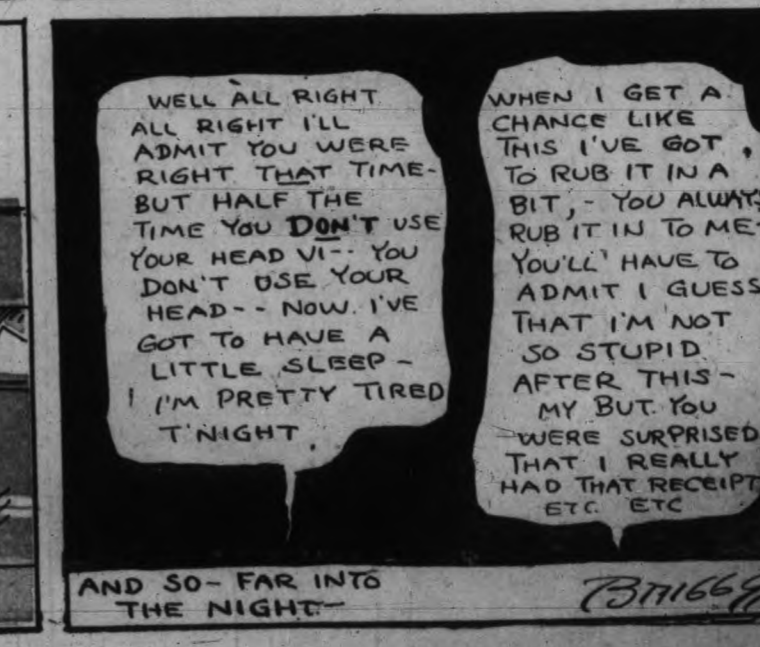 WELL ALL RIGHT
ALL RIGHT I'LL
ADMIT YOU WERE
RIGHT THAT TIME-
BUT HALF THE
TIME YOU DON'T USE
YOUR HEAD VI-- YOU
DON'T USE YOUR
HEAD-- NOW I'VE
GOT TO HAVE A
LITTLE SLEEP-
I'M PRETTY TIRED
T'NIGHT.
WHEN I GET A
CHANCE LIKE
THIS I'VE GOT
TO RUB IT IN A
BIT,- YOU ALWAYS
RUB IT IN TO ME-
YOU'LL HAVE TO
ADMIT I GUESS
THAT I'M NOT
SO STUPID
AFTER THIS-
MY BUT YOU
WERE SURPRISED
THAT I REALLY
HAD THAT RECEIPT
ETC ETC
AND SO- FAR INTO
THE NIGHT-
BRIGGS